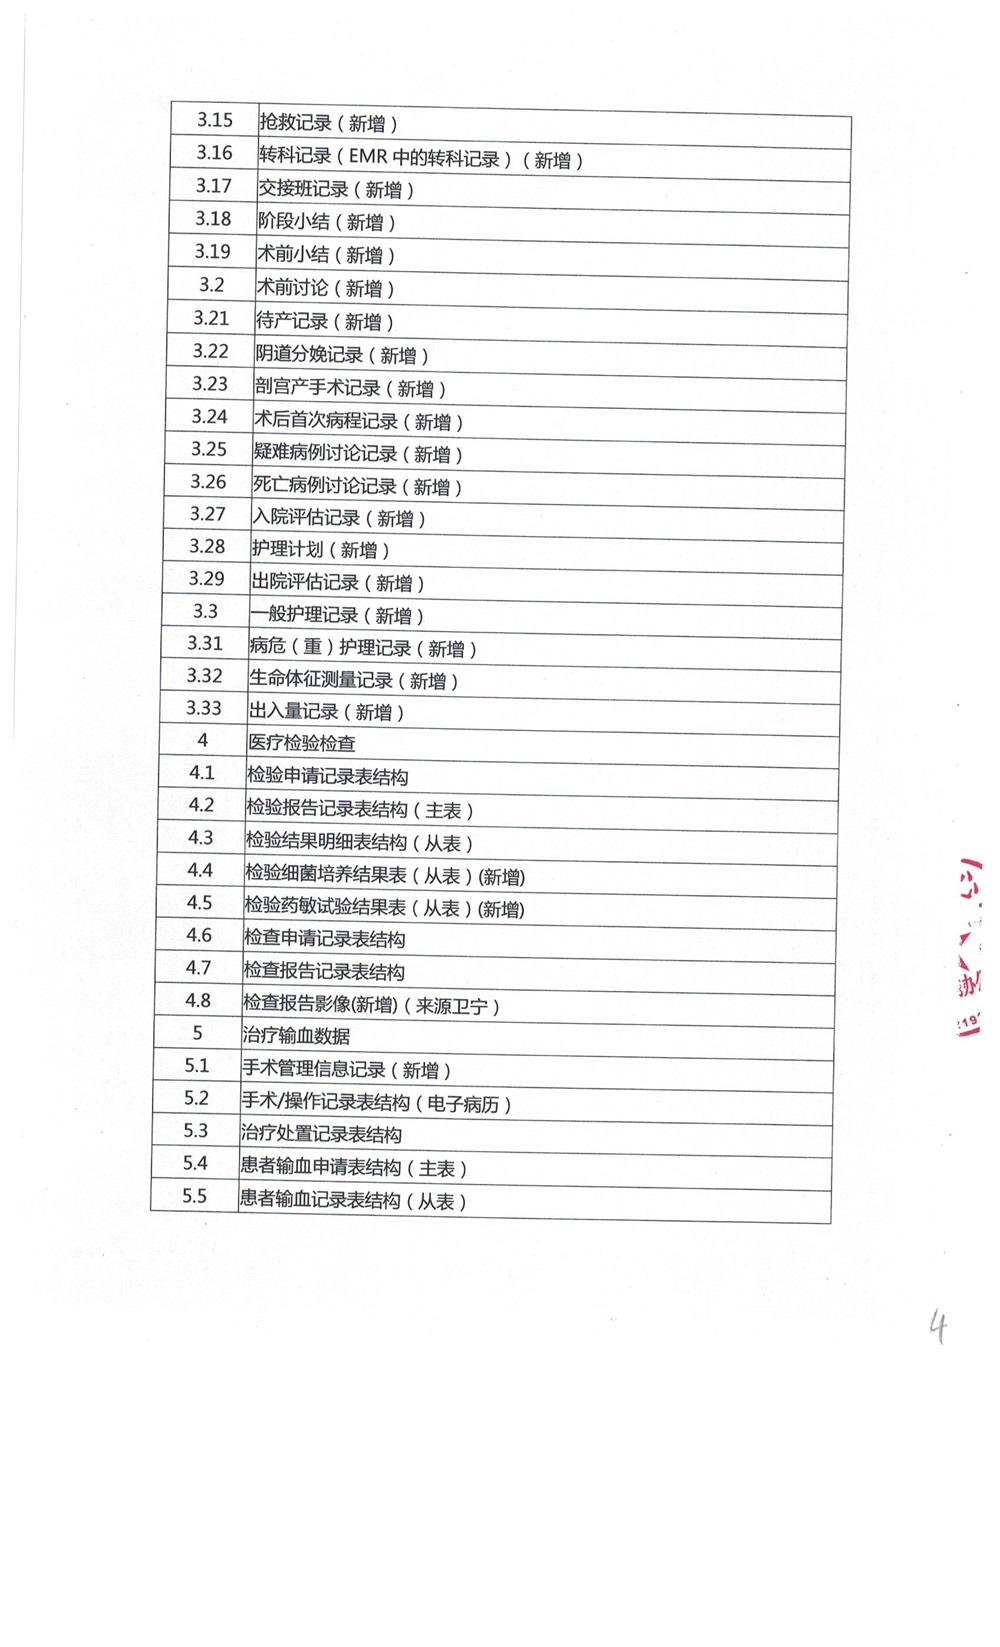 3.15 抢救记录（新增）
3.16 转科记录（EMR 中的转科记录）（新增）
3.17 交接班记录（新增）
3.18 阶段小结（新增）
3.19 术前小结（新增）
3.2 术前讨论（新增）
3.21 待产记录（新增）
3.22 阴道分娩记录（新增）
3.23 剖宫产手术记录（新增）
3.24 术后首次病程记录（新增）
3.25 疑难病例讨论记录（新增）
3.26 死亡病例讨论记录（新增）
3.27 入院评估记录（新增）
3.28 护理计划（新增）
3.29 出院评估记录（新增）
3.3 一般护理记录（新增）
3.31 病危（重）护理记录（新增）
3.32 生命体征测量记录（新增）
3.33 出入量记录（新增）
4 医疗检验检查
4.1 检验申请记录表结构
4.2 检验报告记录表结构（主表）
4.3 检验结果明细表结构（从表）
4.4 检验细菌培养结果表（从表）(新增)
4.5 检验药敏试验结果表（从表）(新增)
4.6 检查申请记录表结构
4.7 检查报告记录表结构
4.8 检查报告影像(新增)（来源卫宁）
5 治疗输血数据
5.1 手术管理信息记录（新增）
5.2 手术/操作记录表结构（电子病历）
5.3 治疗处置记录表结构
5.4 患者输血申请表结构（主表）
5.5 患者输血记录表结构（从表）
4